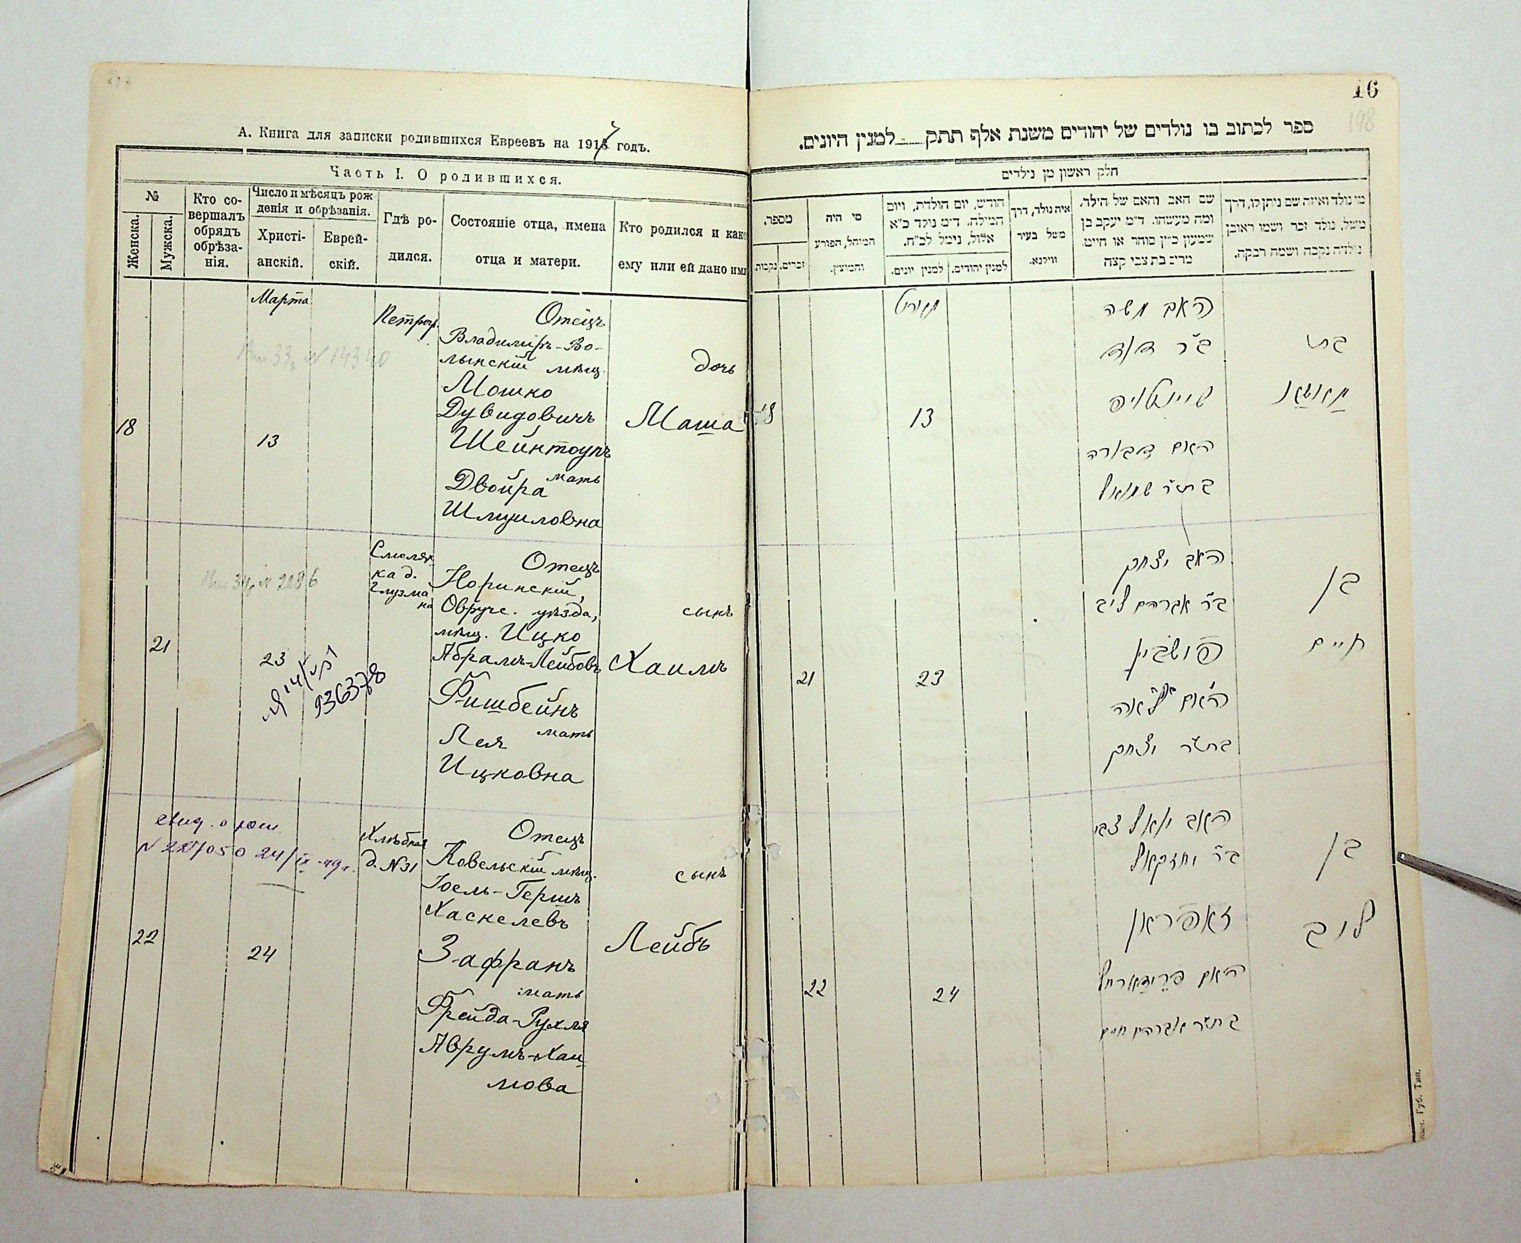 А. Книга для записки родившихся Евреевъ на 1917 годъ.
Часть I. О родившихся.
№
Женска.
Мужска.
Кто со-
вершалъ
обрядъ
обрѣза-
нія.
Число и мѣсяцъ рож
денія и обрѣзанія.
Христі-
анскій.
Еврей-
скій.
Гдѣ ро-
дился.
Состояніе отца, имена
отца и матери.
Кто родился и как
ему или ей дано имя
Марта
18
13
Отецъ
Владиміръ-Во-
лынскій мѣщ.
Мошко
Дувидовичъ
Шейнтоупъ
мать
Двойра
Шмуиловна
дочь
Маша
21
23
Смоляр
ка д.
Глузма
на
Отецъ
Норинскій,
Овруч. уѣзда,
мѣщ. Ицко
Абрамъ-Лейбовъ
Фишбейнъ
мать
Лея
Ицковна
сынъ
Хаимъ
936378
22
24
Хлѣбная
д. №31
Отецъ
Ковельскій мѣщ.
Іоель-Гершъ
Хаскелевъ
Зафранъ
мать
Фрейда-Рухля
Аврумъ-Хаи
мова
сынъ
Лейбъ
16
198
ספר לכתוב בו נולדים של יהודים משנת אלף תתק למנין היונים.
חלק ראשון מן נולדים
מספר.
נקבות
זכרים.
מי היה
המוהל, הפורע
והמוצץ.
חודש, יום הולדת, ויום
המילה. ד״מ נולד כ״א
אלול, נימל לכ״ח.
למנין יונים.
למנין יהודים.
איה נולד, דרך
משל בעיר
ווילנא.
שם האב והאם של הילד,
ומה מעשהו. ד״מ יעקב בן
שמעון כ״ץ סוחר או חייט.
מרים בת צבי קצה
מי נולד ואיזה שם ניתן לו, דרך
משל, נולד זכר ושמו ראובן
נולדה נקבה ושמה רבקה.
18
13
האב משה
ב״ר דוד
האם דבורה
בת״ר שמואל
בת
21
23
האב יצחק
ב״ר אברהם ליב
פישביין
האם לאה
בת״ר יצחק
בן
חיים
22
24
האב יואל צבי
ב״ר יחזקאל
זאפראן
בת״ר אברהם חיים
בן
ליב